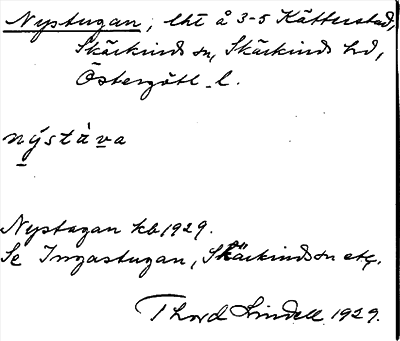 Nystugan, lht å 3-5 Kätterstad,
Skärkinds sn, Skärkinds hd,
Östergötl. l.
nýstàva
Nystugan kb 1929.
Se Ingastugan, Skärkinds sn etc.
Thord Lindell 1929.